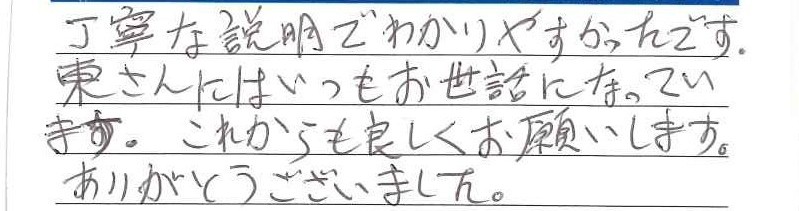 丁寧な説明でわかりやすかったです.
東さんにはいつもお世話になってい
ます。これからも良しくお願いします。
ありがとうございました。